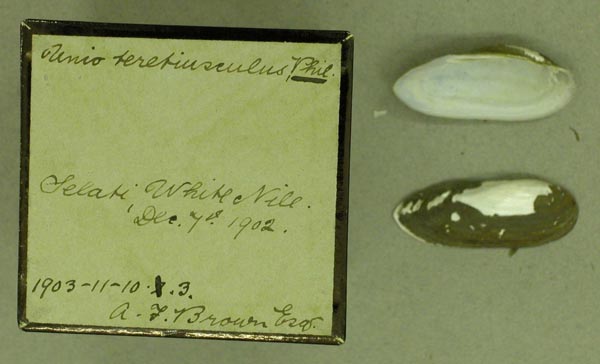 Unio teretiusculus, Phil.
Selati, White Nile.
Dec. 7th 1902.
1903-11-10.3.
A. F. Brown Esq.